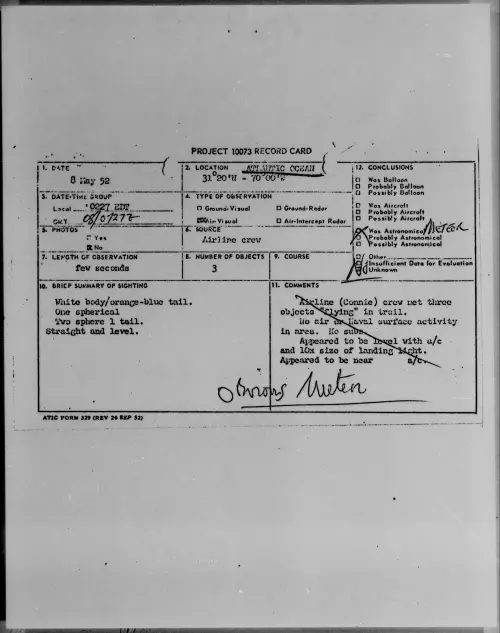 PROJECT 10073 RECORD CARD
1. DATE
8 May 52
2. LOCATION ATLANTIC OCEAN
31°20'N - 70°00'W
12. CONCLUSIONS
□ Was Balloon
□ Probably Balloon
□ Possibly Balloon
□ Was Aircraft
□ Probably Aircraft
□ Possibly Aircraft
Was Astronomical METEOR
Probably Astronomical
□ Possibly Astronomical
Other
Insufficient Data for Evaluation
Unknown
3. DATE-TIME GROUP
Local 0227 EDT
GMT 08/0727Z
4. TYPE OF OBSERVATION
□ Ground-Visual □ Ground-Radar
☒ Air-Visual □ Air-Intercept Radar
5. PHOTOS
□ Yes
☒ No
6. SOURCE
Airline crew
7. LENGTH OF OBSERVATION
few seconds
8. NUMBER OF OBJECTS
3
9. COURSE
10. BRIEF SUMMARY OF SIGHTING
White body/orange-blue tail.
One spherical
Two sphere 1 tail.
Straight and level.
11. COMMENTS
Airline (Connie) crew met three
objects "flying" in trail.
No air or Naval surface activity
in area. No subs.
Appeared to be level with a/c
and 10x size of landing light.
Appeared to be near a/c.
Obvious Meteor
ATIC FORM 329 (REV 26 SEP 52)